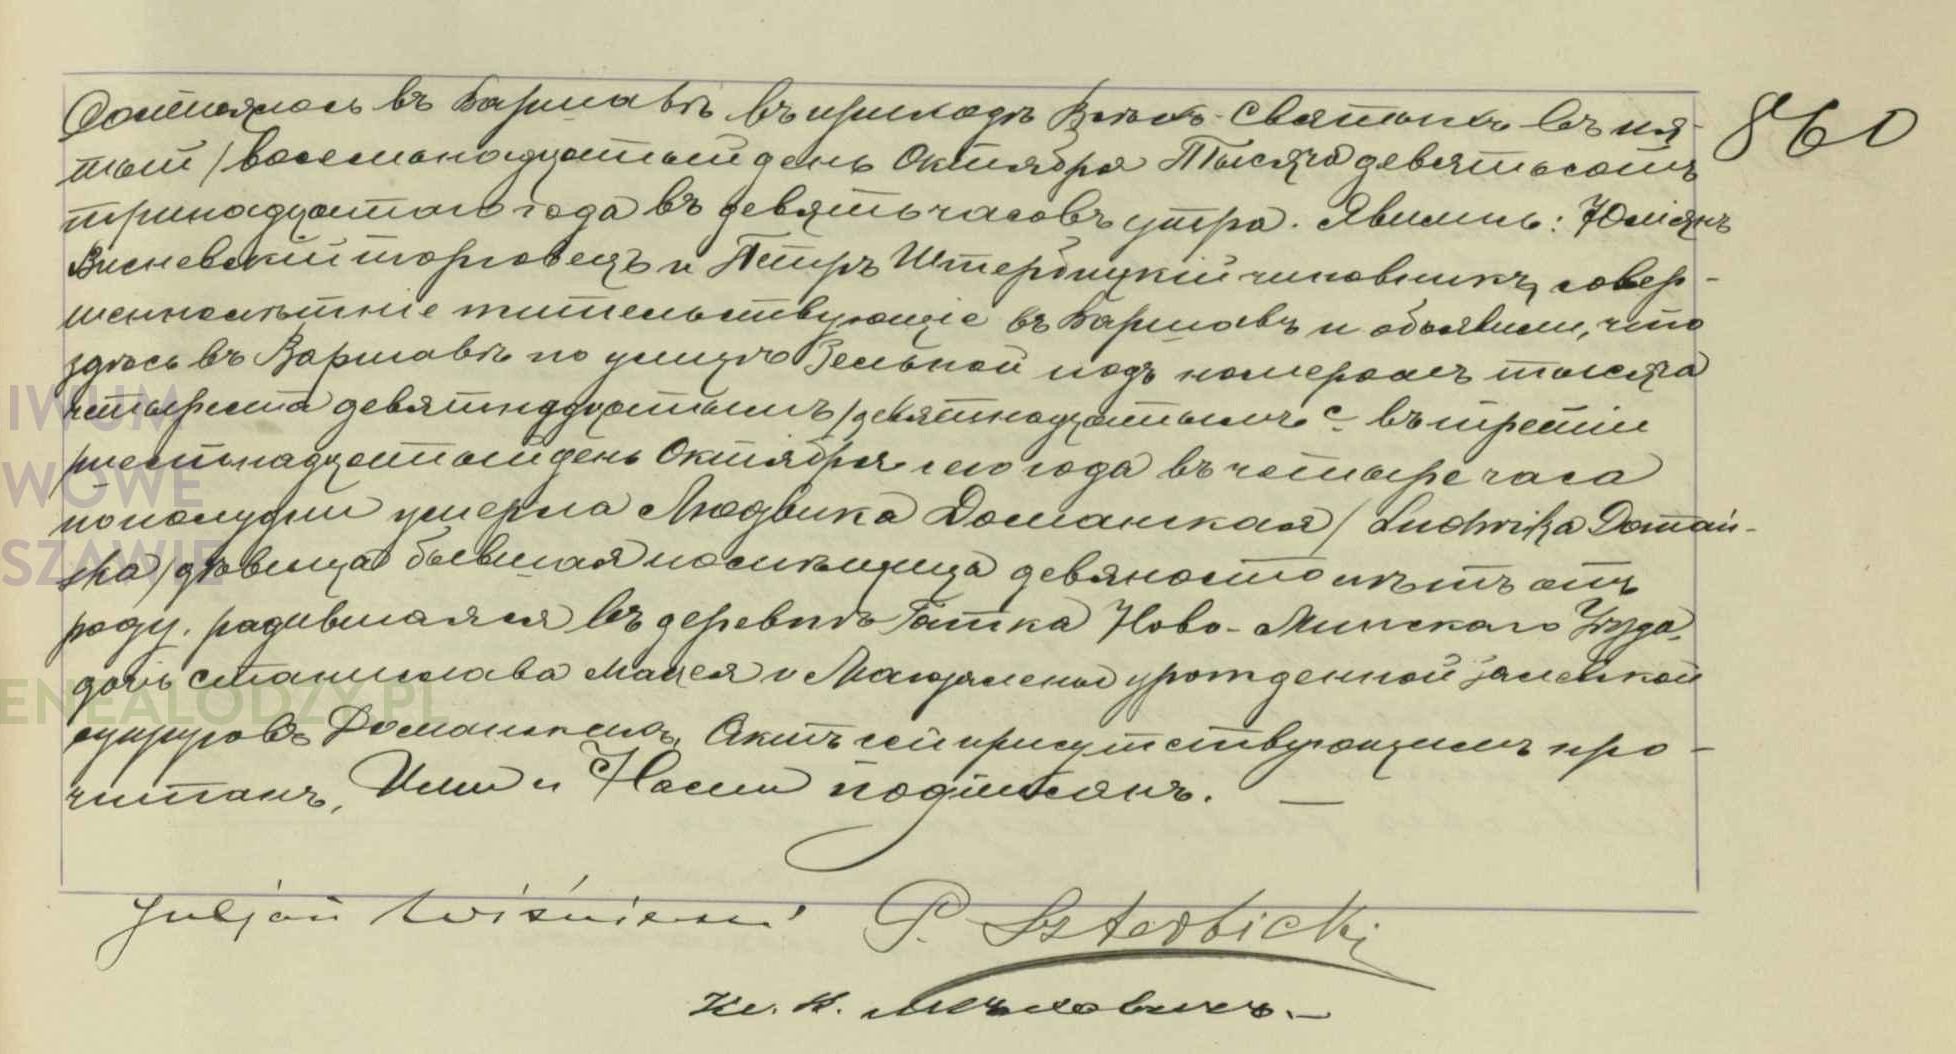 Состоялось въ Варшавѣ въ приходѣ Всѣхъ-Святыхъ въ пя-
860
тый /восемьнадцатый день Октября Тысяча девятьсотъ
тринадцатаго года въ девять часовъ утра. Явились: Юліянъ
Висневскій торговецъ и Петръ Штербицкій чиновникъ, совер-
шеннолѣтніе жительствующіе въ Варшавѣ и объявили, что
здѣсь въ Варшавѣ по улицѣ Зельной подъ номеромъ тысяча
четыреста девятнадцатымъ /девятнадцатымъ с въ третій
/шестнадцатый день Октября сего года въ четыре часа
пополудни умерла Людвика Доманская / Ludwika Domań-
ska / дѣвица бывшая послѣдница девяносто лѣтъ отъ
роду, родившаяся въ деревнѣ Гатка Ново-Минскаго Уѣзда,
дочь Станислава Мацея и Магдалены урожденной
супруговъ Доманскихъ. Актъ сей присутствующимъ про-
читанъ, Ими и Нами подписанъ. —
Juljan Wiśniewski P. Szterbicki
Кс. К.